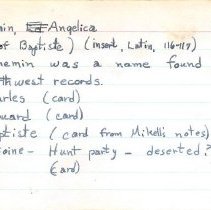 in, Angelica
of Baptiste) (insert, Latin, 116-117)
nemin was a name found
thwest records.
arles (card)
uard (card)
ptiste (card from Mikell's notes)
oine - Hunt party - deserted?
(card)